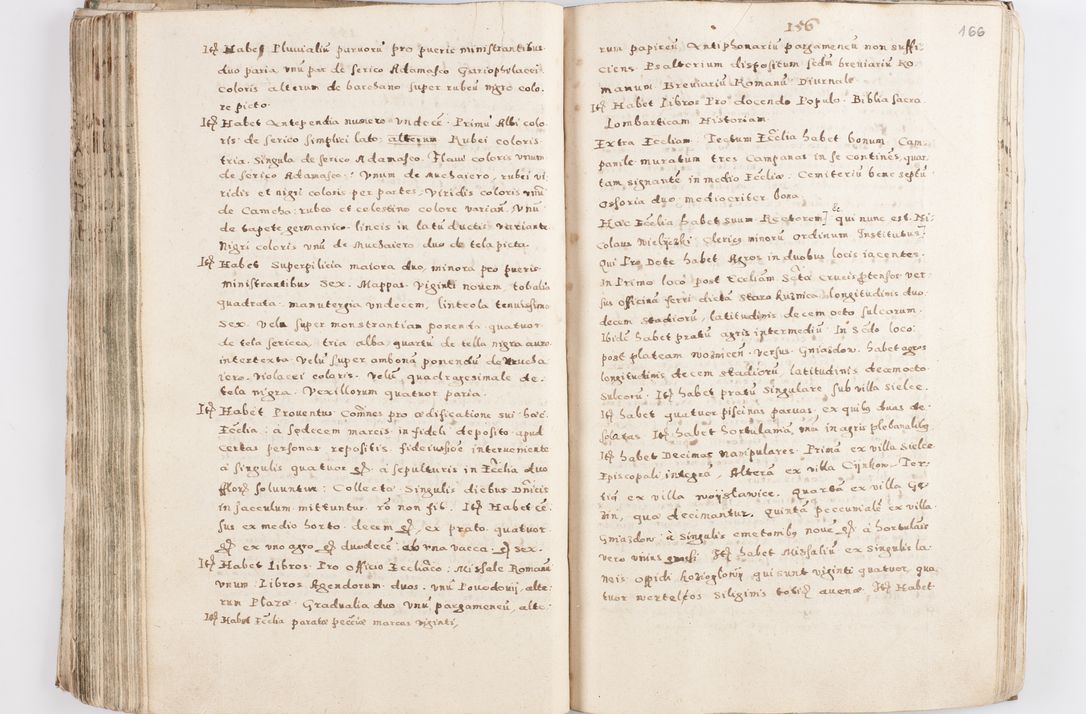 Itē Habet Pluvialiū paruorū pro pueris ministrantibus
duo paria vnū par de serico Adamasco Gariophylacei
coloris alterum de bacesano super rubeū nigro colo,
re picto.
Itē Habet Antependia numero vndecē. Primū Albi colo
ris de serico simplici lato, alterum Rubei coloris
tria. Singula de serico Adamasco. Flaui coloris vnum
de serico Adamasco: Vnum de Muchaiero, rubei vi,
ridis et nigri coloris per partes. Viridis coloris vnū
de Camcha: rubeo et celestino colore varian. Vnū
de tapete germanico lineis in latū ductis variante
Nigri coloris vnū de Muchaiero duo de tela picta.
Itē Habet Superpilicia maiora duo, minora pro pueris
ministrantibus Sex. Mappas Viginti novem, tobalia
quadrata manutergia vndecem, linteola tenuissimo
Sex. Vela super monstrantiam ponenda quatuor
de tela sericea, tria alba, quartū de tella nigra auro
intertexta. Velū super ambonā ponendū de Mucha,
iero. Violacei coloris. Velū quadragesimale de.
tela nigra. Vexillorum quatuor paria.
Itē Habet Prouentus Comnes pro ædificatione sui hæc
Ecclia: à sedecem marcis in fideli deposito apud
certas personas repositis fideiussioē interueniente
à singulis quatuor à sepulturis in Ecclia duo
floren soluuntur: Collecta Singulis diebus Dnicis
in sacculum mittuntur. rō non fit. Itē Habet cē,
sus ex medio horto decem ex prato quatuor
ex vno agro duodecē: ab vna vacca sex.
Itē Habet Libros Pro Officio Eccliaco: Missale Romanū
vnum: Libros Agendorum duos. vnū Pouodouij, alte,
rum Plaza. Gradualia duo Vnū pargameneū, alte,
Itē Habet Ecclia paratæ pecciæ marcas viginti,
156
166
rum papireū Antiphonariū pargameneū non suffi,
ciens Psalterium dispositum secdm breuiariū Ro,
manum Breuiariū Romanū Diurnale
Itē Habet Libros Pro docendo Populo. Biblia sacra
Lombarticam Historiam.
Extra Eccliam. Tectum Ecclia habet bonum, Cam,
panile muratum tres Campanas in se continēs, quar
tam signantē in medio Eccliæ. Cemiteriū bene septū
Ossoria duo mediocriter bona.
Hæc Ecclia habet suum Rectorem &c qui nunc est Ni
colaus Wielyeski. Clericus minorū Ordinum Institutus
Qui Pro Dote habet Agros in duobus locis iacentes.
In Primo loco post Eccliam Sctæ Crucis ptensos ver
sus officinā ferri dictā Staro Kuznica longitudinis duo
decem stadiorū, latitudinis decem octo sulcorum.
Ibidē habet pratū agris intermediū. In Secdo loco:
post plateam Wozniceñ. versus Gniazdow. habet agros
longitudinis decem stadiorū, latitudinis decemocto
Sulcorū. Itē habet pratū Singulare sub villa Sielce.
Itē habet quatuor piscinas paruas ex quibus duas de,
solatas. Itē habet hortulaniā vnā in agris plebanalibus
Itē habet Decimas manipulares. Primā ex villa Sielce
Episcopali integrā, Alterā ex villa Cynkow. Ter,
tiā ex villa Woyslawice. Quartā ex villa Ge,
zin, quæ decimantur. Quintā peccunialē ex villa
Gniazdow: à Singulis cmetonibus nouē à hortulanis
vero vnius grossi Itē habet Missaliū ex singulis la,
neis Oppidi Kozieglowy qui sunt viginti quatuor, qua
tuor wertelios Siliginis totidē auenæ. Itē Habet